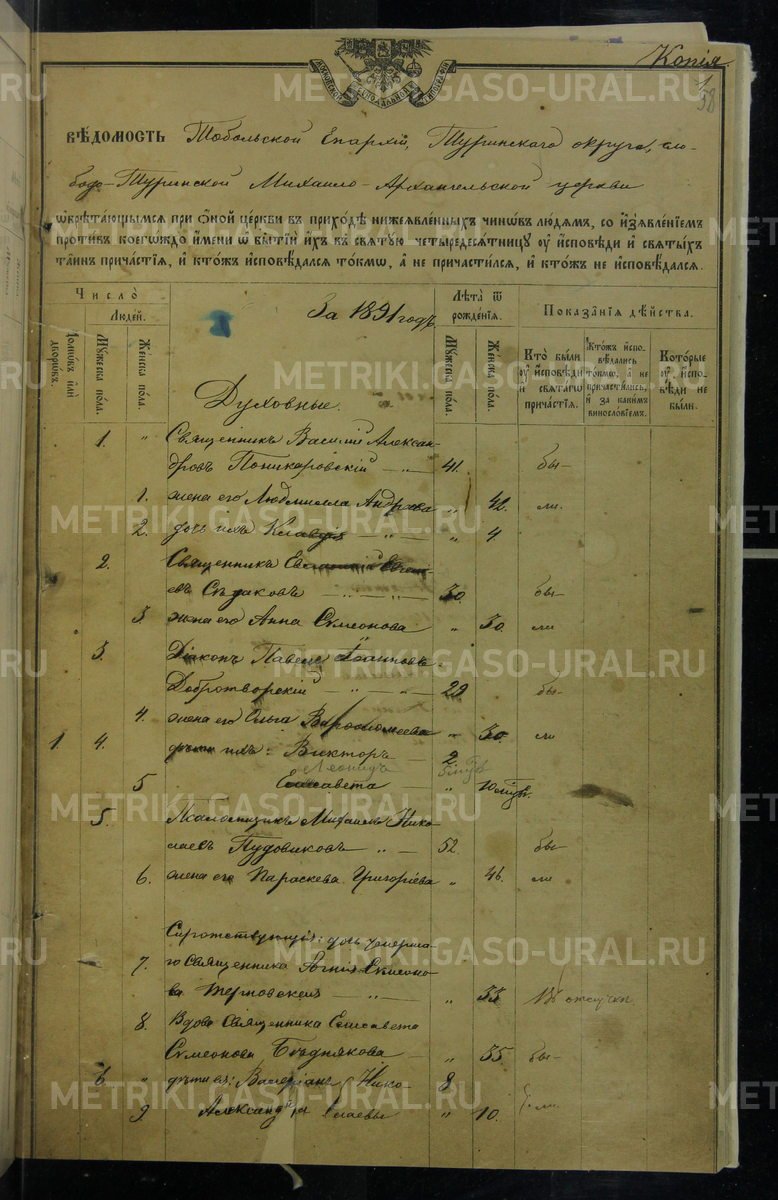 Копія.
58
ВѢДОМОСТЬ Тобольской Епархіи, Туринскаго округа, сло-
бодо-Туринской Михаило-Архангельской церкви
ѡбрѣтающымся при ѻной церкви въ приходѣ нижеѧвленныхъ чинѡвъ людямъ, со изъявленіемъ
противъ коегѡждо имени ѡ бытіи ихъ въ святую четыредесѧтницу ѹ исповѣди и святыхъ
таинъ причастія, и ктожъ исповѣдался токмѡ, а не причастилсѧ, и ктожъ не исповѣдался.
Число
Людей.
Домѡвъ или дворѡвъ.
Мужеска пола.
Женска пола.
За 1891 годъ.
Лѣта ѿ рожденія.
Мужеска пола.
Женска пола.
Показанія дѣйства.
Кто были ѹ исповѣди и святагѡ причастія.
Ктожъ исповѣдались токмѡ, а не причастились, и за какимъ винословіемъ.
Которые ѹ исповѣди не были.
Духовные.
1. " Священникъ Василій Алексан-
дровъ Поникаровскій 41. бы-
1. жена его Людмилла Андреева " 42. ли.
2. дочь ихъ Клавдія " 4.
2. Священникъ
Сѣдаковъ 30. бы-
3. жена его Анна Симеонова " 30. ли
3. Діаконъ Павелъ Іоанновъ
Добротворскій 29 бы-
4. жена его Ольга Варѳоломеева " 30. ли
1 4. дѣти ихъ: Викторъ 2
Леонидъ
5 Елисавета "
5. Псаломщикъ Михаилъ Нико-
лаевъ Пудовиковъ 52. бы-
6. жена его Параскева Григоріева " 46. ли
Сиротствующія: дочь умерша-
7. го Священника Симеоно-
ва Терновская " 33 Въ отлучки.
8. Вдова Священника Елисавета
Симеонова Бѣднякова " 35. бы-
6 " дѣти ея: Валеріанъ Нико- 8
9 Александра лаевы " 10. ли
METRIKI.GASO-URAL.RU